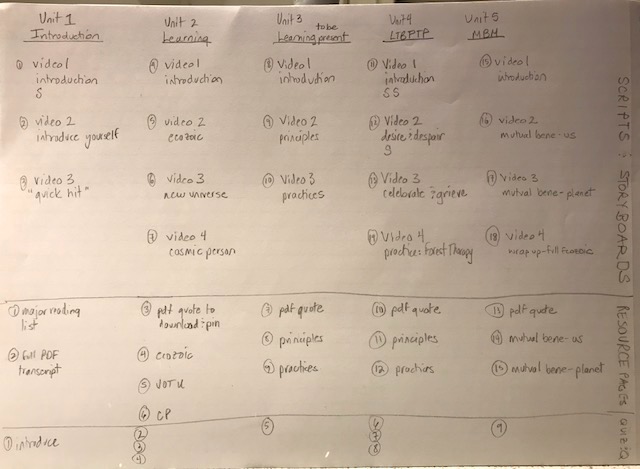 Unit 1
Introduction
Unit 2
Learning
Unit 3
to be
Learning present
Unit 4
LTBPTP
Unit 5
MBH
① Video 1
introduction
S
④ Video 1
introduction
⑧ Video 1
introduction
⑪ Video 1
introduction
SS
⑮ video 1
introduction
② video 2
introduce yourself
⑤ video 2
ecozoic
⑨ Video 2
principles
⑫ Video 2
desire & despair
g
⑯ video 2
mutual bene-us
③ Video 3
"quick hit"
⑥ Video 3
new universe
⑩ Video 3
practices
⑬ Video 3
celebrate & grieve
⑰ Video 3
mutual bene-planet
⑦ video 4
cosmic person
⑭ Video 4
practice: Forest Therapy
⑱ video 4
wrap up-full Ecozoic
SCRIPTS & STORYBOARDS
① major reading
list
③ pdf quote to
download & pin
⑦ pdf quote
⑩ pdf quote
⑬ pdf quote
② full PDF
transcript
④ ecozoic
⑧ principles
⑪ principles
⑭ mutual bene-us
⑤ JOTU
⑨ practices
⑫ practices
⑮ mutual bene-planet
⑥ CP
RESOURCE PAGES
① introduce
②
③
④
⑤
⑥
⑦
⑧
⑨